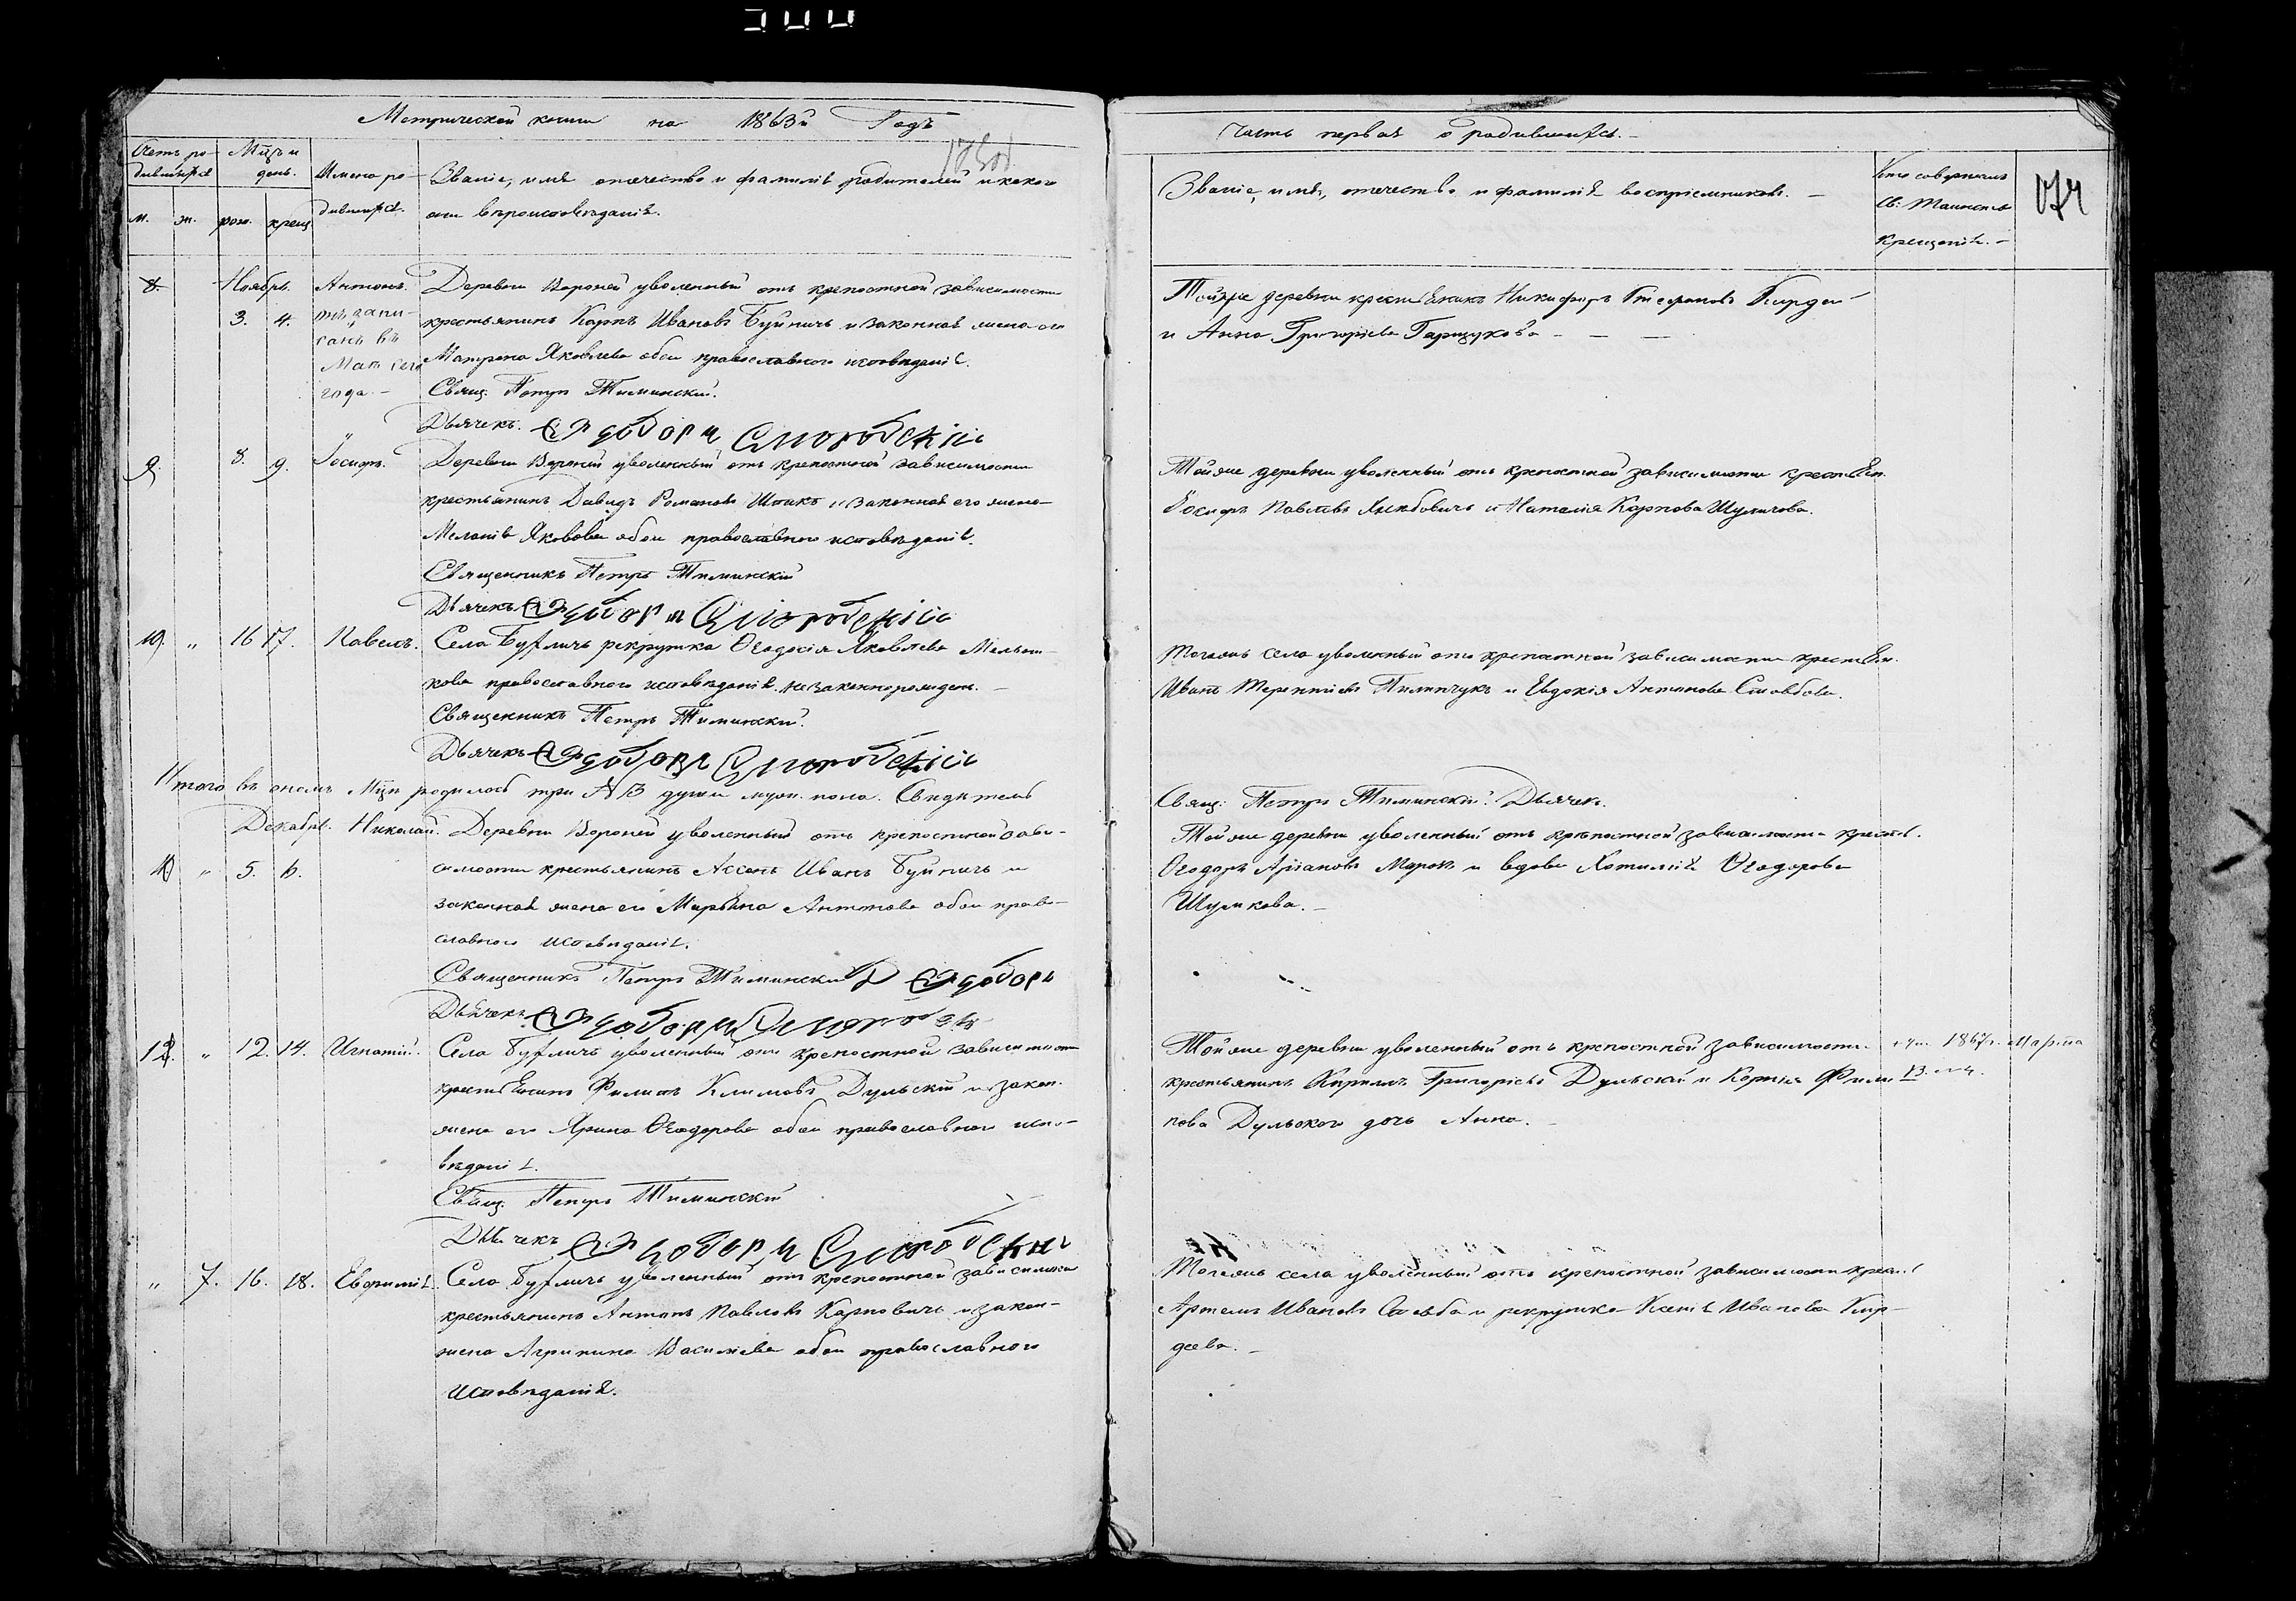 Метрической книги на 1863й Годъ
Часть первая о родившихся.
Счетъ родившихся
Мцъ и день.
Имена родившихся.
Званіе, имя отечество и фамилія родителей и какого
они вѣроисповѣданія.
м. ж. рож. крещ.
Званіе, имя, отечество и фамилія воспріемниковъ. —
Кто совершилъ
Св: Таинство
крещенія. —
8. Ноябрь. Антонъ. Деревни Вороней уволенный отъ крепостной зависимости
3. 4. запи- крестьянинъ Карпъ Ивановъ Буйничъ и законная жена его
санъ въ Матрона Яковлева обои православнаго исповѣданія.
сего
года — Свящ. Петръ Тиминскій.
Дьячекъ.
Тойже деревни крестьянинъ Никифоръ Стефановъ Кирдей
и Анна Григоріева Гарщукова — — —
9. 8. 9. Іосифъ. Деревни Вороней уволенный отъ крепостной зависимости
крестьянинъ Давидъ Романовъ Шпакъ и законная его жена
Меланія Яковова обои православнаго исповѣданія.
Священникъ Петръ Тиминскій
Дьячекъ
Тойже деревни уволенный отъ крепостной зависимости крестьян.
Іосифъ Павловъ и Наталія Карпова Шуликова.
10. " 16 17. Павелъ. Села Бухличъ рекрутка Ѳеодосія Яковлева Мельни-
кова православнаго исповѣданія. незаконнорожден. —
Священникъ Петръ Тиминскій.
Дьячекъ
Тогожъ села уволенный отъ крепостной зависимости крестьян.
Иванъ Терентіевъ Пилипчукъ и Евдокія Антонова Столбова.
Итого въ ономъ Мцѣ родилось три 3 души муж. пола. Свидѣтель
Свящ: Петръ Тиминскій. Дьячек.
Декабрь. Николай. Деревни Вороней уволенный отъ крепостной зави-
11 " 5. 6. симости крестьянинъ Иванъ Буйничъ и
законная жена его Марьяна Антонова обои право-
славнаго исповѣданія.
Священникъ Петръ Тиминскій
Дьячекъ
Тойже деревни уволенный отъ крѣпостной зависимости крестья.
Ѳеодоръ Марок и вдова Ѳеодорова
Шуликова. —
12. " 12. 14. Игнатій. Села Бухличъ уволенный отъ крепостной зависимости
крестьянинъ Филипъ Климовъ Дульскій и закон.
жена его Ярина Ѳеодорова обои православнаго испо-
вѣданія.
Свящ. Петръ Тиминскій
Дьячекъ
Тойже деревни уволенный отъ крепостной зависимости
крестьянинъ Кирилъ Григоріевъ Дульскій и Фили
пова Дульского дочь Анна. —
1867г. Марта
13.
" 7. 16. 18. Евфимія. Села Бухличъ уволенный отъ крепостной зависимости
крестьянинъ Антонъ Павловъ Карповичъ и закон-
жена Агрипина Василіева обои православнаго
исповѣданія.
Тогожъ села уволенный отъ крепостной зависимости крест.
Артемъ Ивановъ и рекрутка Ксенія Иванова Кир-
деева. —